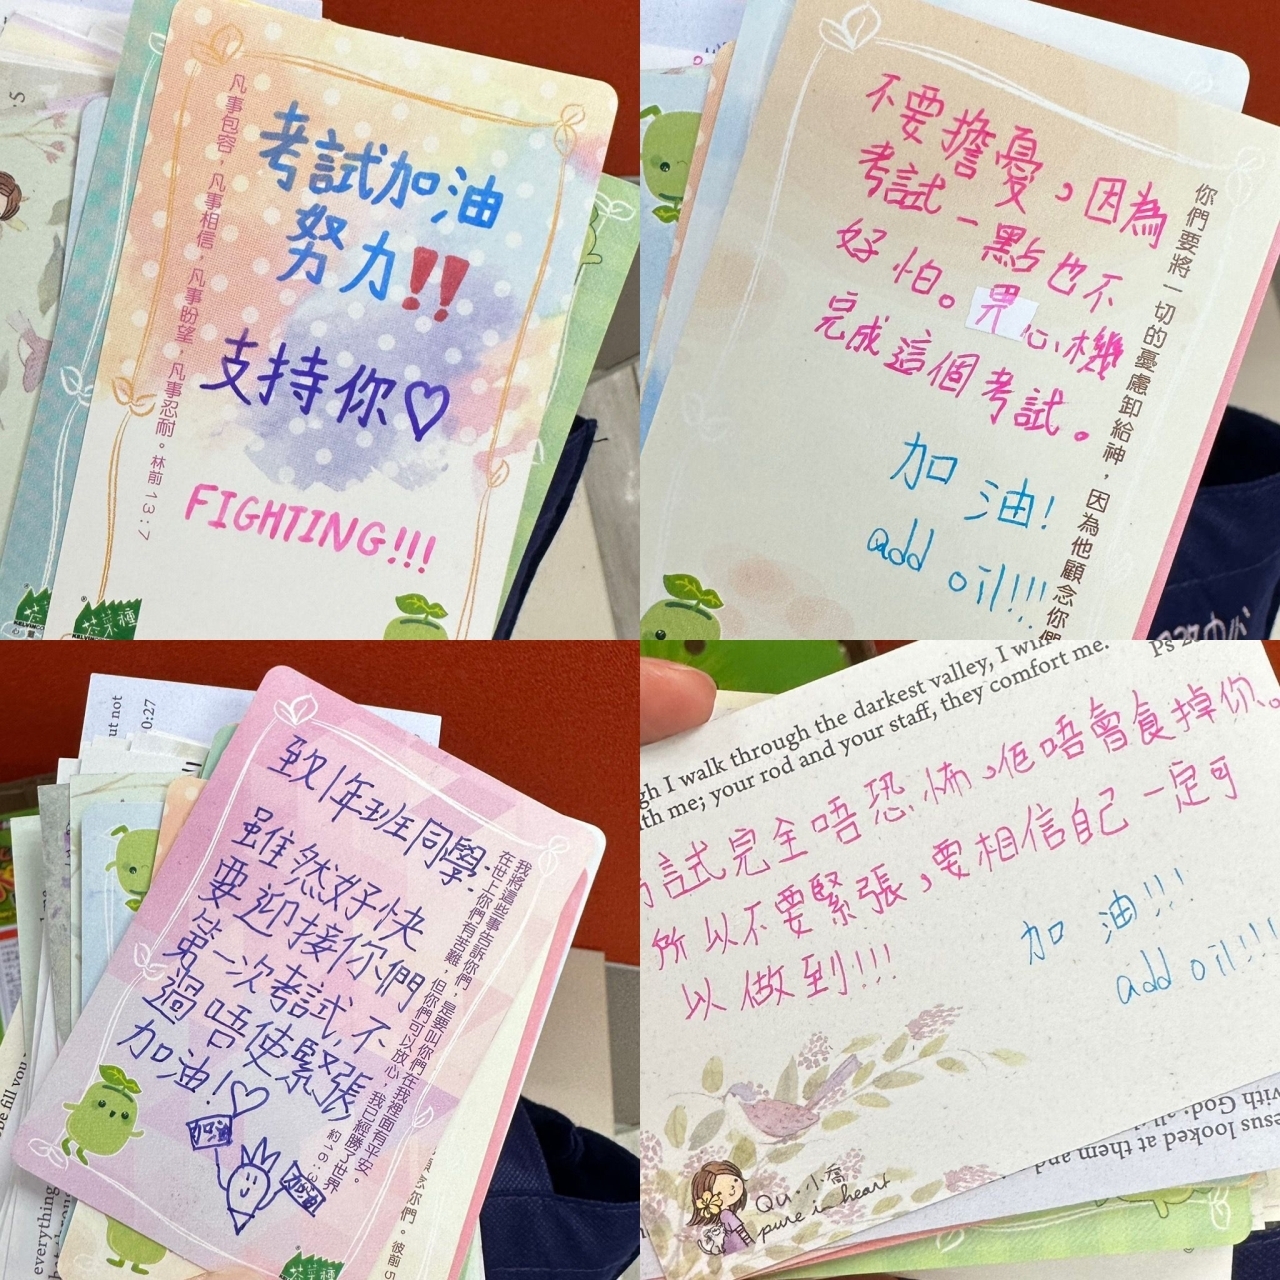 考試加油
努力!!
支持你♡
FIGHTING!!!
凡事包容，凡事相信，凡事盼望，凡事忍耐。林前 13:7
不要擔憂，因為
考試一點也不
好怕。畀心機
完成這個考試。
加油!
add oil!!!
你們要將一切的憂慮卸給神，因為他顧念你們
致1年班同學:
雖然好快
要迎接你們
第一次考試,不
過唔使緊張
加油!♡
加油
加油
我將這些事告訴你們，是要叫你們在我裡面有平安。
在世上你們有苦難，但你們可以放心，我已經勝了世界
約16:3
你們。彼前5
ut not
0:27
be fill you
everything
gh I walk through the darkest valley, I will
th me; your rod and your staff, they comfort me.
Ps 2
試完全唔恐怖，佢唔會食掉你。
所以不要緊張，要相信自己一定可
以做到!!!
加油!!!
add oil!!!
Qu·小喬
pure in heart
esus looked at them and
with God;